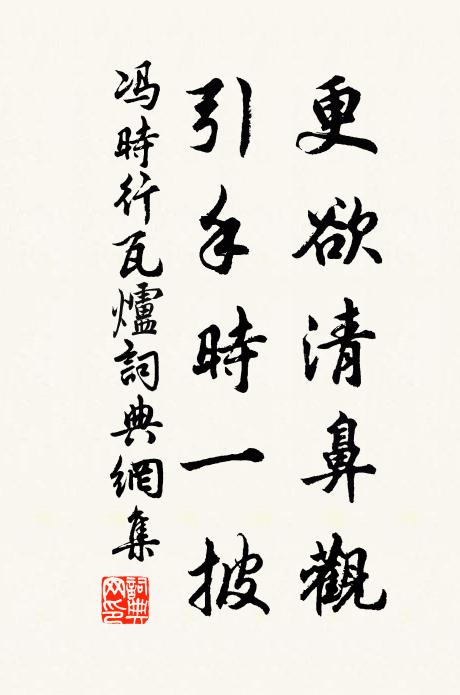 更欲清鼻觀
引手時一披
冯時行瓦爐詞典網集
詞典網印